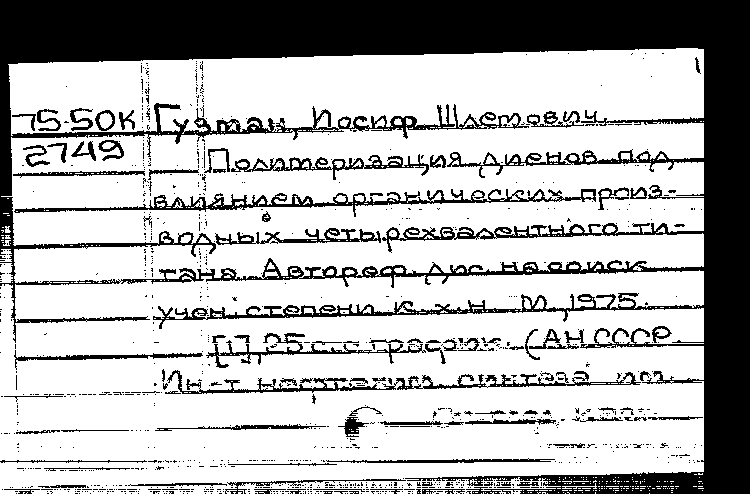 75-50К Гузман, Иосиф Шлемович.
2749 Полимеризация диенов под
влиянием органических произ-
водных четырехвалентного ти-
тана. Автореф. дис. на соиск.
учен. степени к. х. н. М., 1975.
[1], 25 с. с график. (АН СССР.
Ин-т нефтехим. синтеза им.